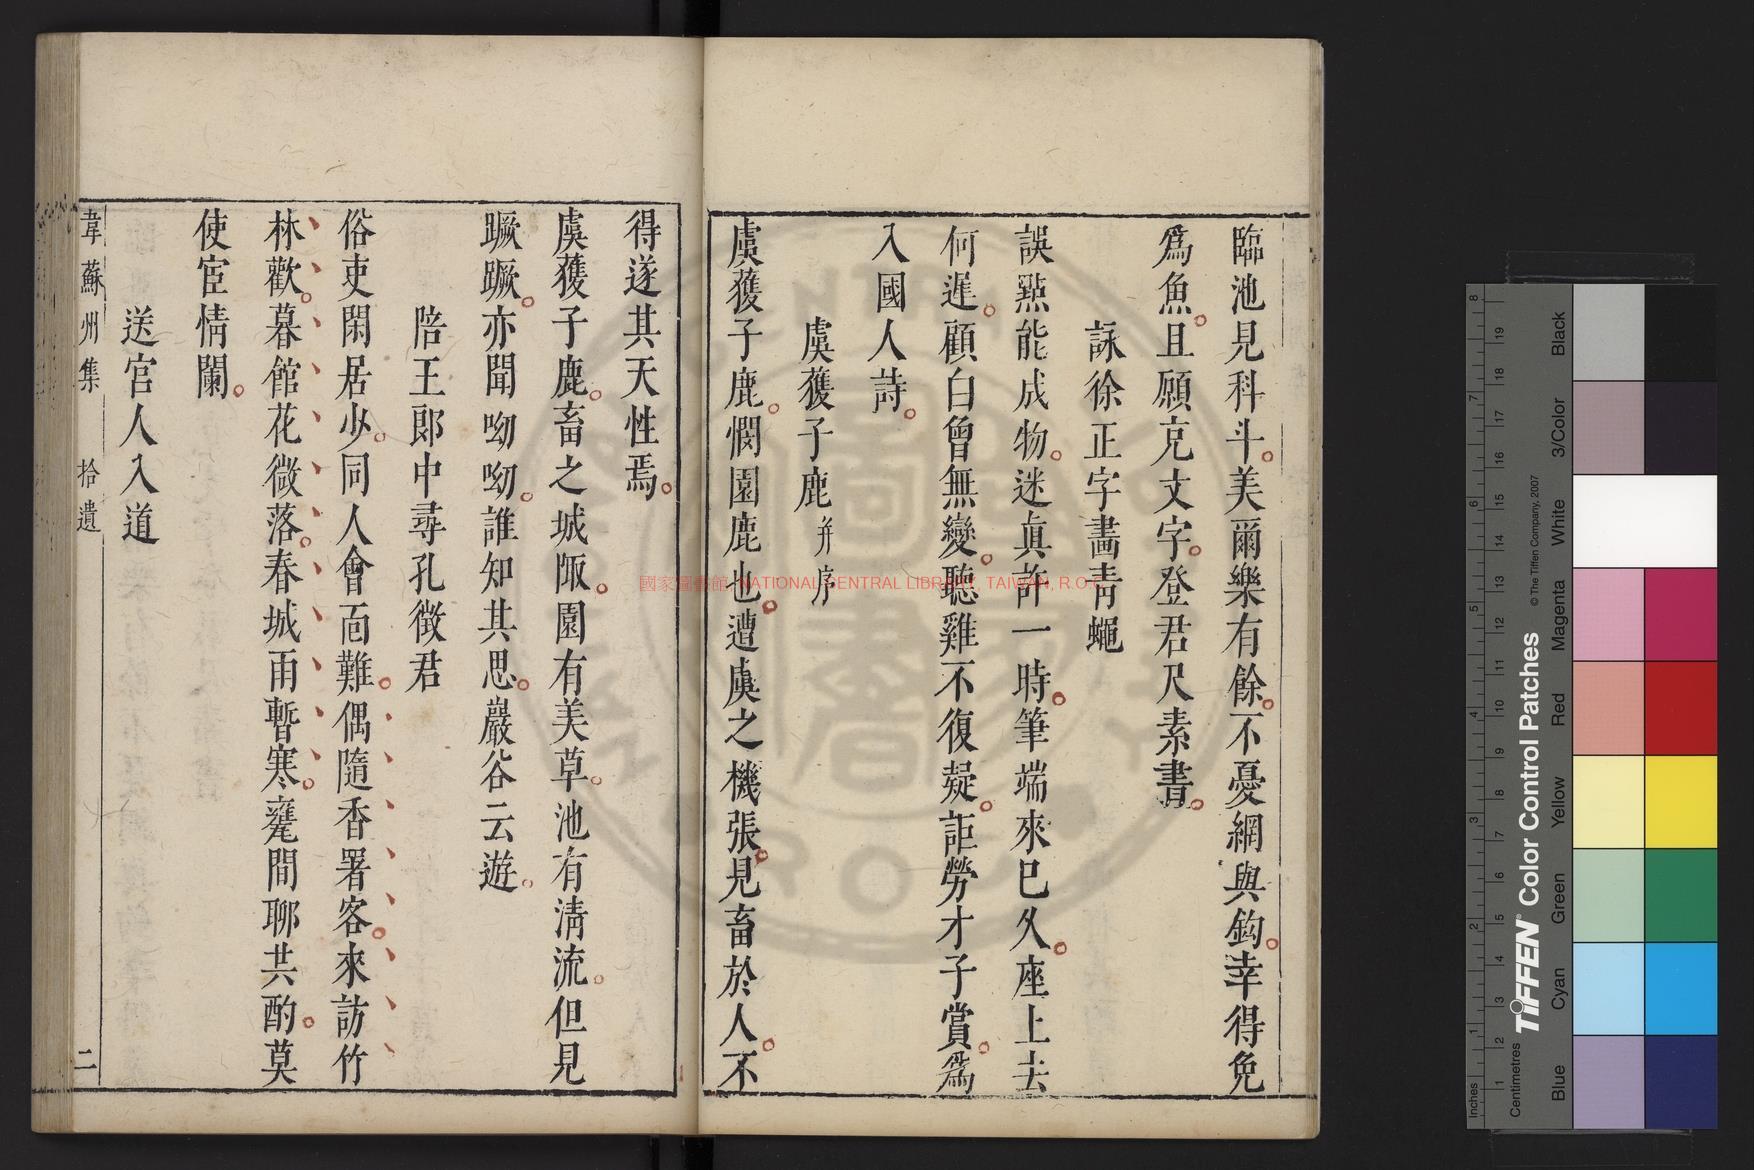 臨池見科斗美爾樂有餘不憂網與鈎幸得免
爲魚且願克文字登君尺素書
詠徐正字畫靑蠅
誤㸃能成物迷眞許一時筆端來巳久座上去
何遲顧白曾無變聽雞不復疑詎勞才子賞爲
入國人詩
虞獲子鹿并序
虞獲子鹿憫園鹿也遭虞之機張見畜於人不
得遂其天性焉
虞獲子鹿畜之城陬園有美草池有淸流但見
蹶蹶亦聞呦呦誰知其思巖谷云遊
陪王郎中尋孔徴君
俗吏閑居少同人會面難偶隨香署客來訪竹
林歡暮館花微落春城雨暫寒甕間聊共酌莫
使宦情闌
送宮人入道
韋蘇州集 拾遺 二
國家圖書館 NATIONAL CENTRAL LIBRARY, TAIWAN, R.O.C
TIFFEN Color Control Patches
© The Tiffen Company, 2007
Inches
Centimetres
Blue Cyan Green Yellow Red Magenta White 3/Color Black